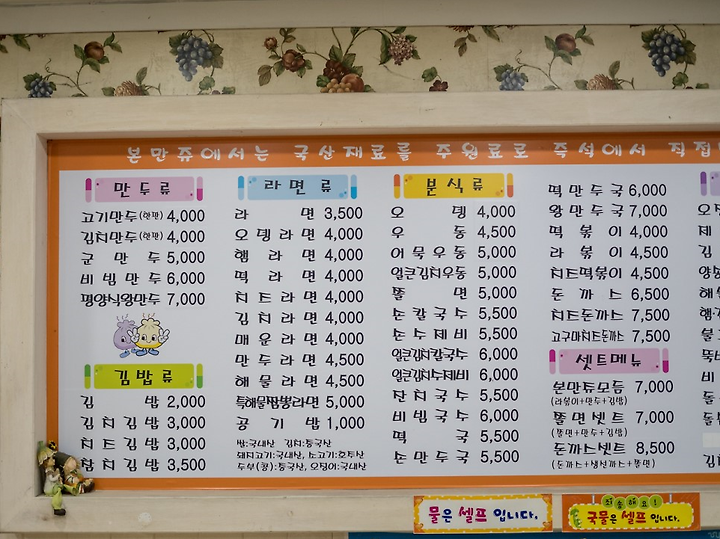 본만쥬에서는 국산재료를 주원료로 즉석에서 직접
만두류
고기만두(한판) 4,000
김치만두(한판) 4,000
군만두 5,000
비빔만두 6,000
평양식왕만두 7,000
김밥류
김밥 2,000
김치김밥 3,000
치즈김밥 3,000
참치김밥 3,500
라면류
라면 3,500
오뎅라면 4,000
햄라면 4,000
떡라면 4,000
치즈라면 4,000
김치라면 4,000
매운라면 4,000
만두라면 4,500
해물라면 4,500
특해물짬뽕라면 5,000
공기밥 1,000
쌀:국내산 김치:중국산
돼지고기:국내산, 소고기:호주산
두부(콩):중국산, 오징어:국내산
분식류
오뎅 4,000
우동 4,500
어묵우동 5,000
얼큰김치우동 5,000
쫄면 5,000
손칼국수 5,500
손수제비 5,500
얼큰김치칼국수 6,000
얼큰김치수제비 6,000
잔치국수 5,500
비빔국수 6,000
떡국 5,500
손만두국 5,500
떡만두국 6,000
왕만두국 7,000
떡볶이 4,000
라볶이 4,500
치즈떡볶이 4,500
돈까스 6,500
치즈돈까스 7,500
고구마치즈돈까스 7,500
셋트메뉴
본만쥬모듬 7,000
(라볶이+만두+김밥)
쫄면셋트 7,000
(쫄면+만두+김밥)
돈까스셋트 8,500
(돈까스+생선까스+쫄면)
물은 셀프 입니다.
죄송해요!
국물은 셀프 입니다.